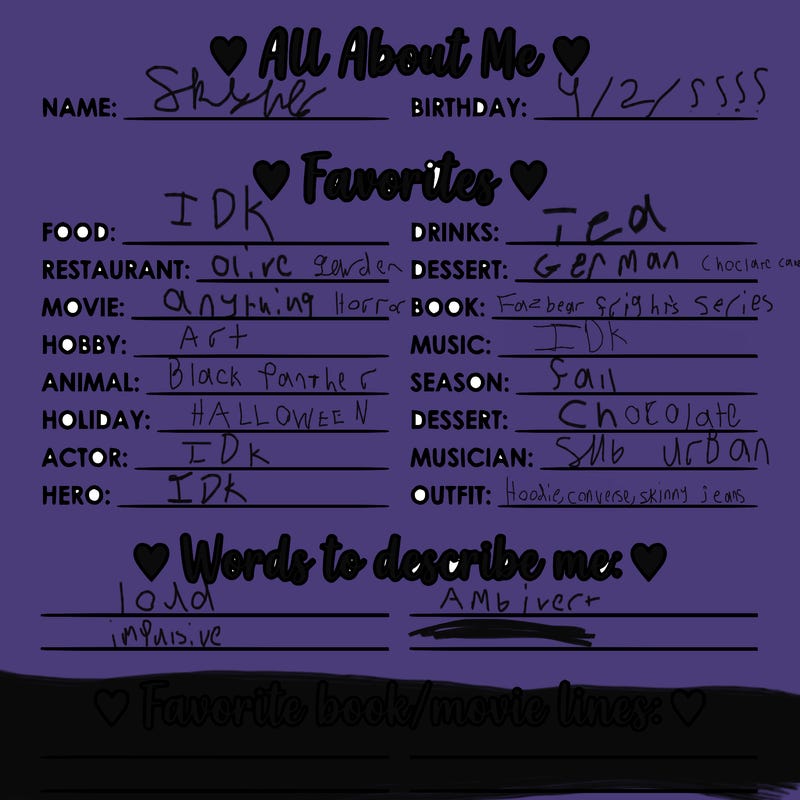 All About Me
NAME: BIRTHDAY: 4/2/????
Favorites
FOOD: IDK DRINKS: Tea
RESTAURANT: Olive Garden DESSERT: German Choclate cake
MOVIE: anything Horror BOOK: Fazbear frights series
HOBBY: Art MUSIC: IDK
ANIMAL: Black Panther SEASON: fall
HOLIDAY: HALLOWEEN DESSERT: Chocolate
ACTOR: IDK MUSICIAN: SUb urBan
HERO: IDK OUTFIT: Hoodie, converse, skinny jeans
Words to describe me:
loud AMbivert
impulsive
Favorite book/movie lines: